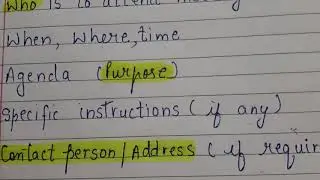 Who is to attend
When, Where, time
Agenda (Purpose)
Specific instructions (if any)
Contact person/Address (if requir